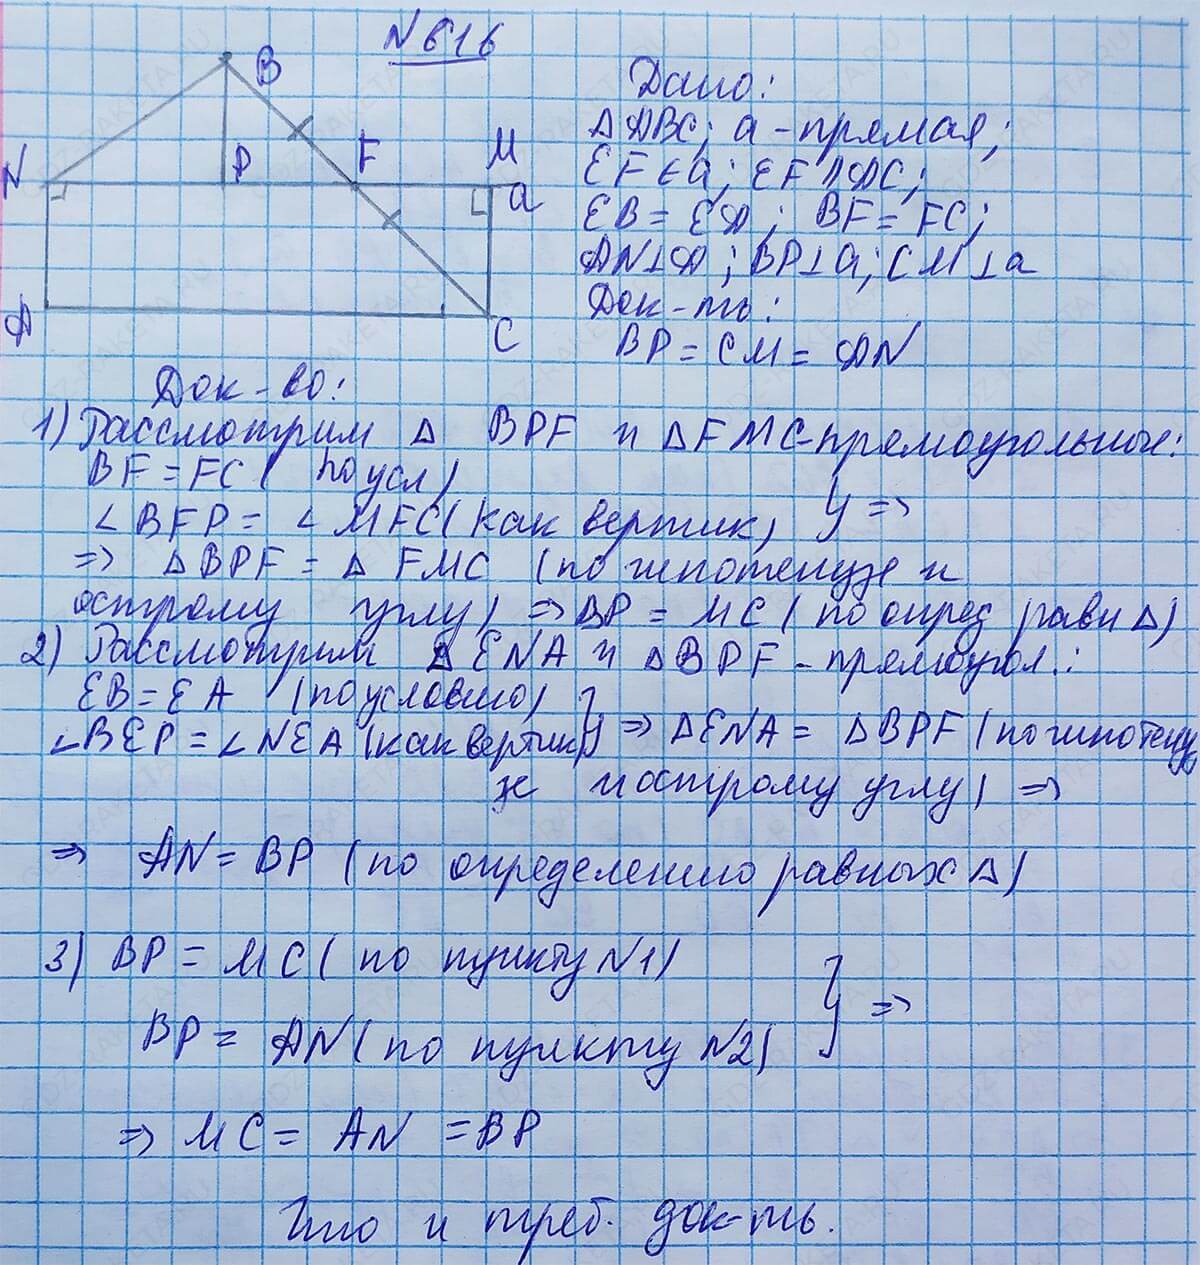 N 616
B
N
P
F
M
a
A
C
Дано:
△ABC; a - прямая;
EF ∈ a; EF ∩ AC;
EB = EA; BF = FC;
AN ⊥ A; BP ⊥ a; CM ⊥ a
Док-ть:
BP = CM = AN
Док-во:
1) Рассмотрим △ BPF и △FMC-прямоугольные:
BF = FC ( по усл)
∠BFP = ∠MFC (как вертик) } =>
=> △BPF = △ FMC (по гипотенузе и
острому углу) => BP = MC (по опред равн △)
2) Рассмотрим △ENA и △BPF - прямоугол.:
EB = EA (по условию) }
∠BEP = ∠NEA (как вертик) } => △ENA = △BPF (по гипотену
зе и острому углу) =>
=> AN = BP (по определению равных △)
3) BP = MC ( по пункту N1)
} =>
BP = AN ( по пункту N2)
=> MC = AN = BP
Что и треб. док-ть.
GDZ-RAKETA.RU